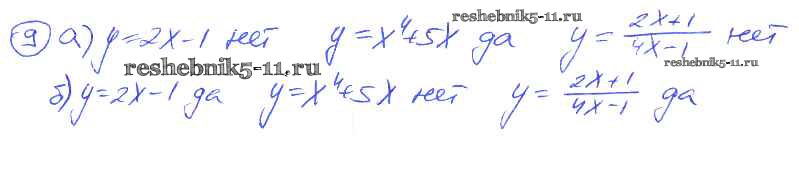 reshebnik5-11.ru
9 а) y=2x-1 нет y=x⁴+5x да y=(2x+1)/(4x-1) нет
reshebnik5-11.ru
reshebnik5-11.ru
б) y=2x-1 да y=x⁴+5x нет y=(2x+1)/(4x-1) да